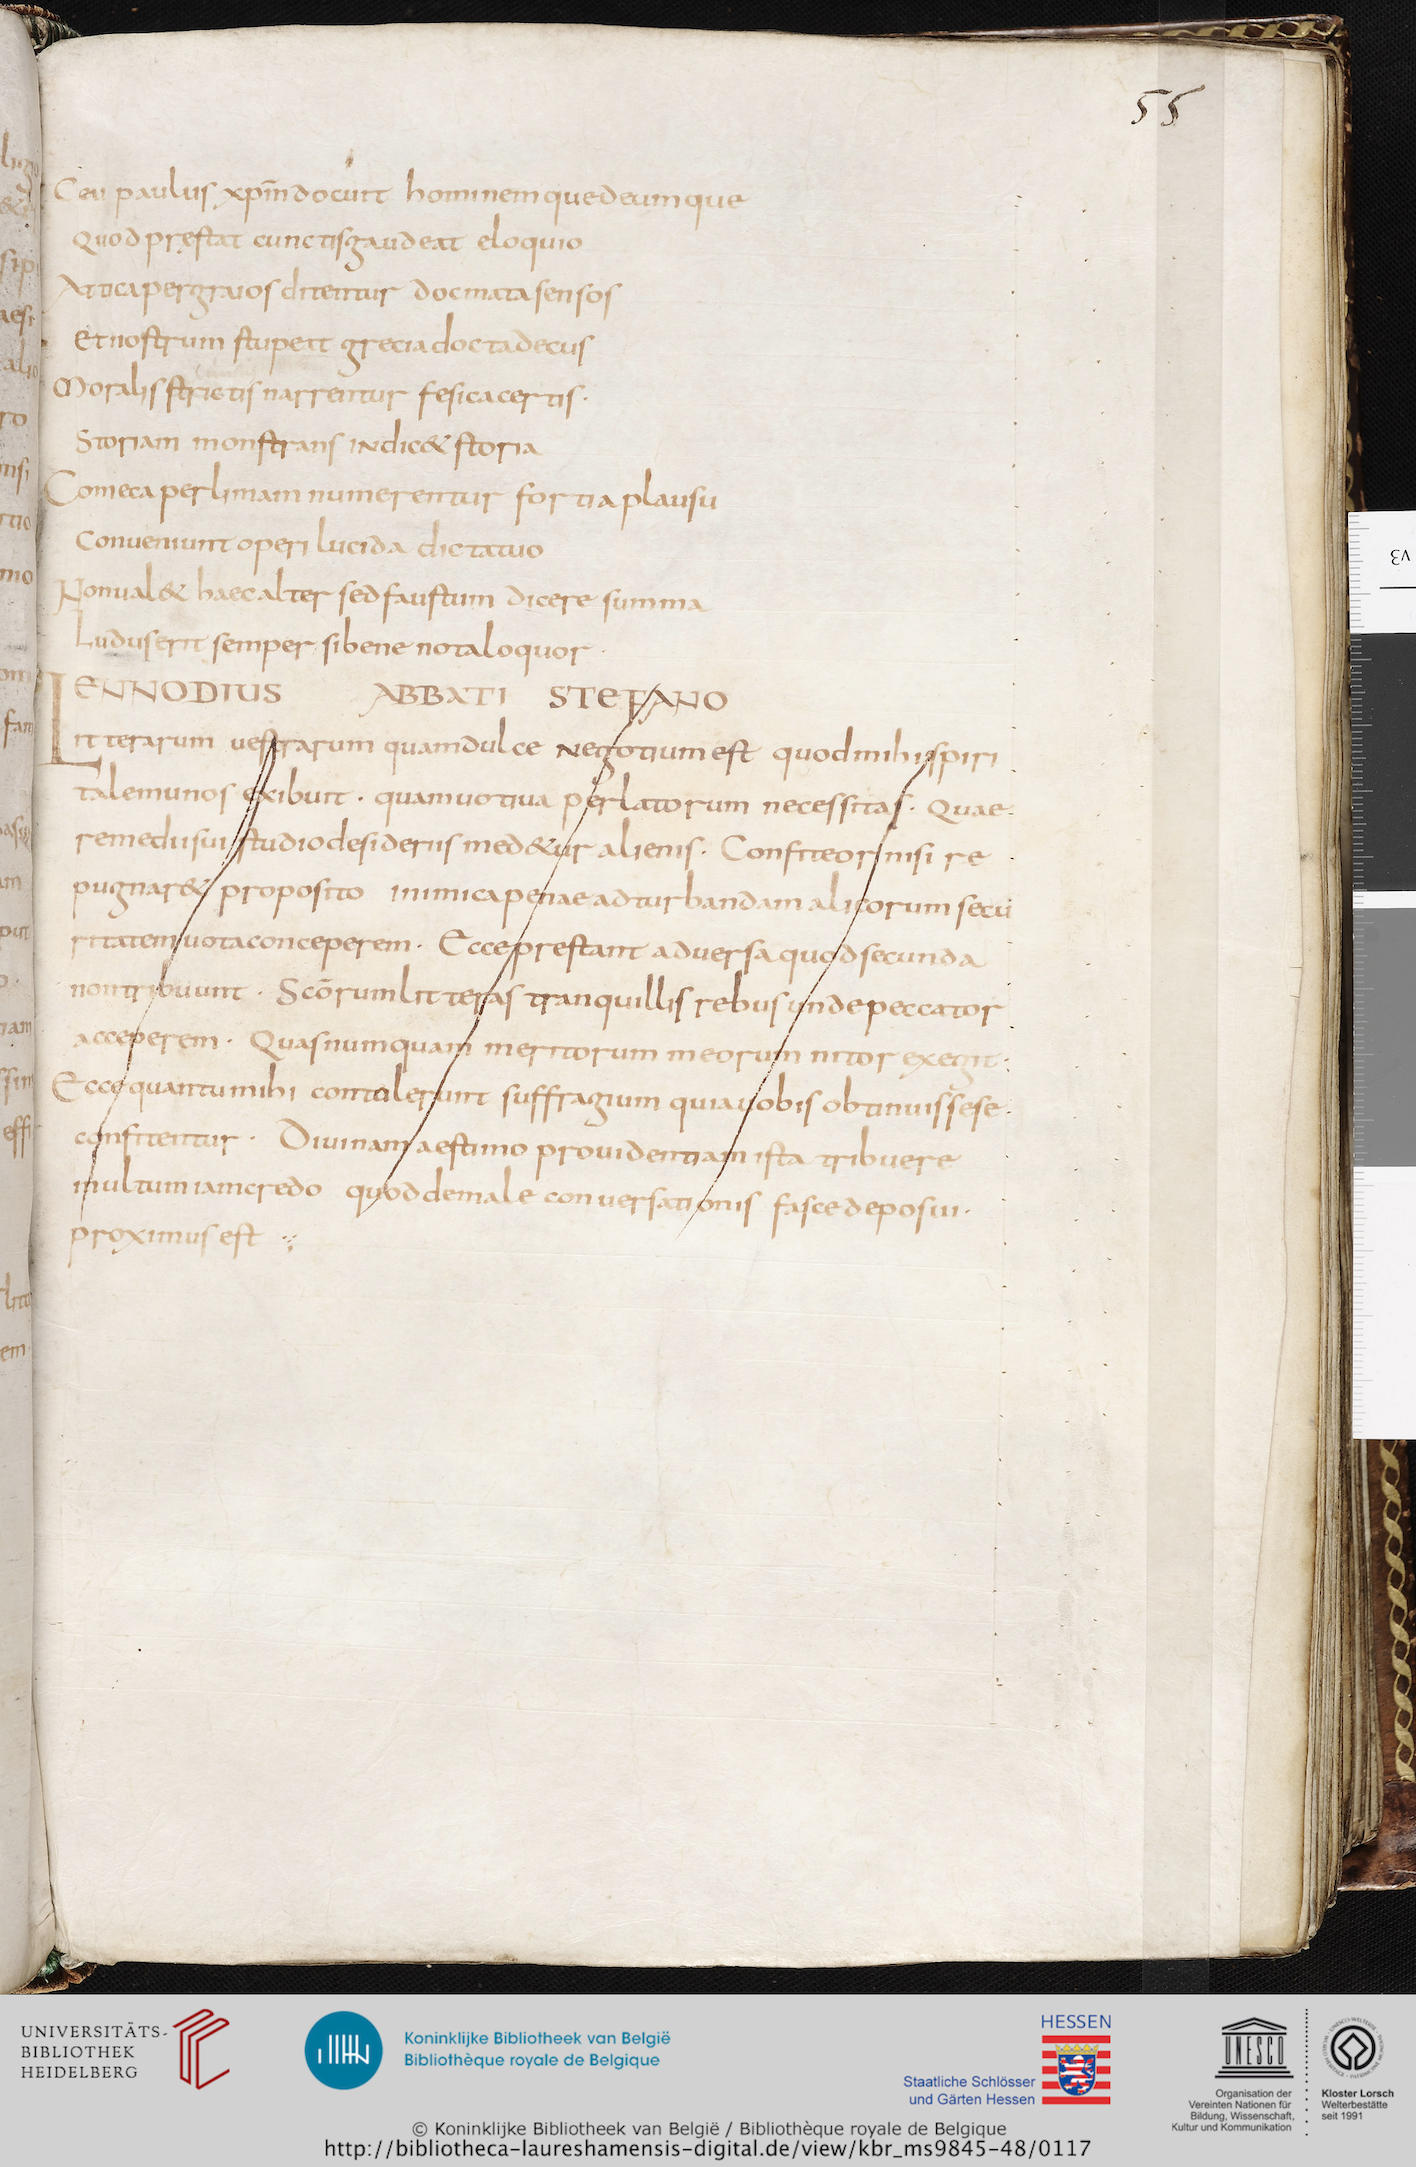 55
Ceu paulus xp̄m docuit hominemquedeumque
Quod pręstat cunctisgaudeat eloquio
Attica pergraios ditentur docmata sensos
Et nostrum stupeit grecia docta decus
Moralis strictis narrentur fesica certis.
Storiam monstrans indic& storia
Comeca perlimam numerentur fortia plausu
Conveniunt operi lucida dictatuo
Nonual& haec alter sed faustum dicere summa
Ludus erit semper si bene nota loquor.
ENNODIUS ABBATI STEFANO
Litterarum vestrarum quam dulce negotium est quod mihi spiri
tale munos exibuit. quam uotiua perlatorum necessitas. Quae
remedii sui studio desideriis med&ur alienis. Confiteor nisi re
pugnar& proposito inimica penae ad turbandam alicorum secu
ritatem uota conceperem. Ecce prestant adversa quod secunda
non tribuunt. Scōrum litteras tranquillis rebus unde peccator
acceperem. Quas numquam meritorum meorum nitor exegit.
Ecce quantu mihi contulerunt suffragium quia uobis obtinuisse se.
confitentur. Divinam aestimo prouidentiam ista tribuere
multum iam credo quod de male conversationis fasce deposui.
proximus est
UNIVERSITÄTS-
BIBLIOTHEK
HEIDELBERG
Koninklijke Bibliotheek van België
Bibliothèque royale de Belgique
HESSEN
Staatliche Schlösser
und Gärten Hessen
UNESCO
Organisation der
Vereinten Nationen für
Bildung, Wissenschaft,
Kultur und Kommunikation
Kloster Lorsch
Welterbestätte
seit 1991
© Koninklijke Bibliotheek van België / Bibliothèque royale de Belgique
http://bibliotheca-laureshamensis-digital.de/view/kbr_ms9845-48/0117